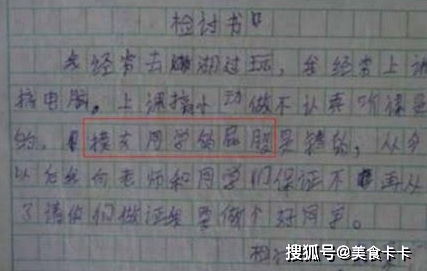 检讨书
我经常去湖过玩，我经常上
搞电脑。上课搞小动做不认真听课是
的，摸女同学的屁股是错的，从今
以后我向老师和同学们保证不再从
了请你们做证我要做个好同学。
检讨
搜狐号@美食卡卡